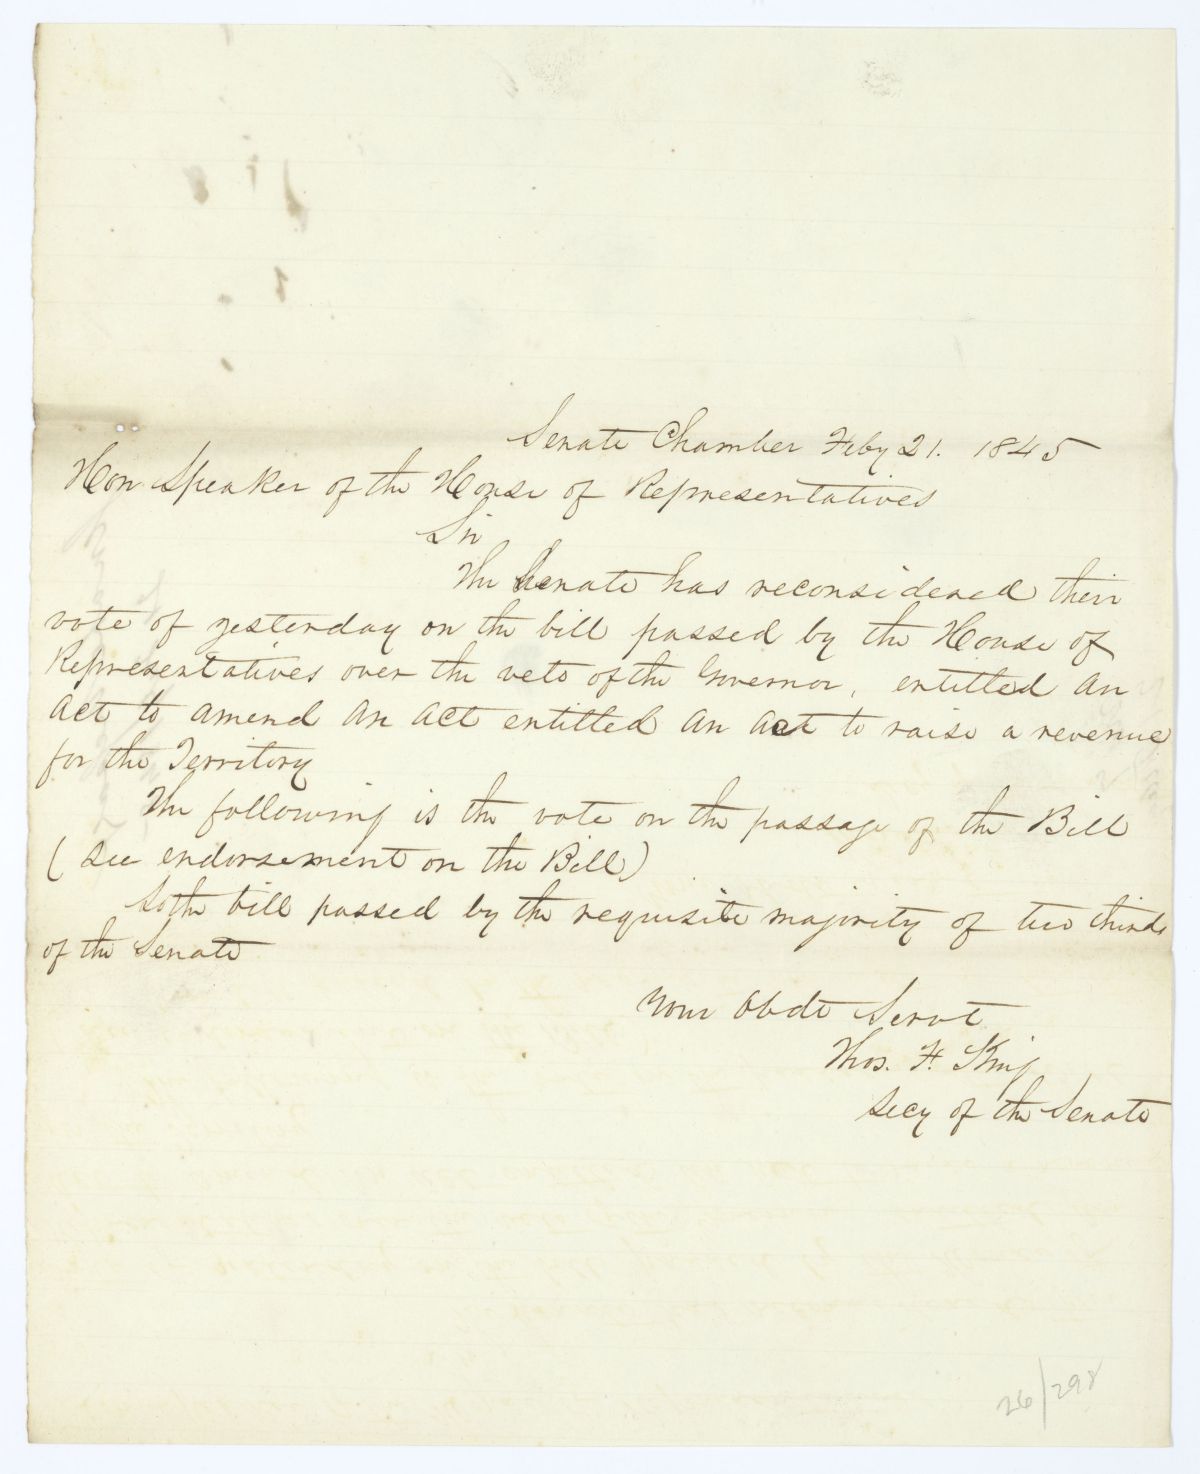 Senate Chamber Feby 21. 1845
Hon Speaker of the House of Representatives
Sir
The Senate has reconsidered their
vote of yesterday on the bill passed by the House of
Representatives over the veto of the Governor, entitled An
Act to amend An Act entitled An Act to raise a revenue
for the Territory
The following is the vote on the passage of the Bill
(See endorsement on the Bill)
So the bill passed by the requisite majority of two thirds
of the Senate
Your Obdt Servt
Thos. F. King
Secy of the Senate
26/298